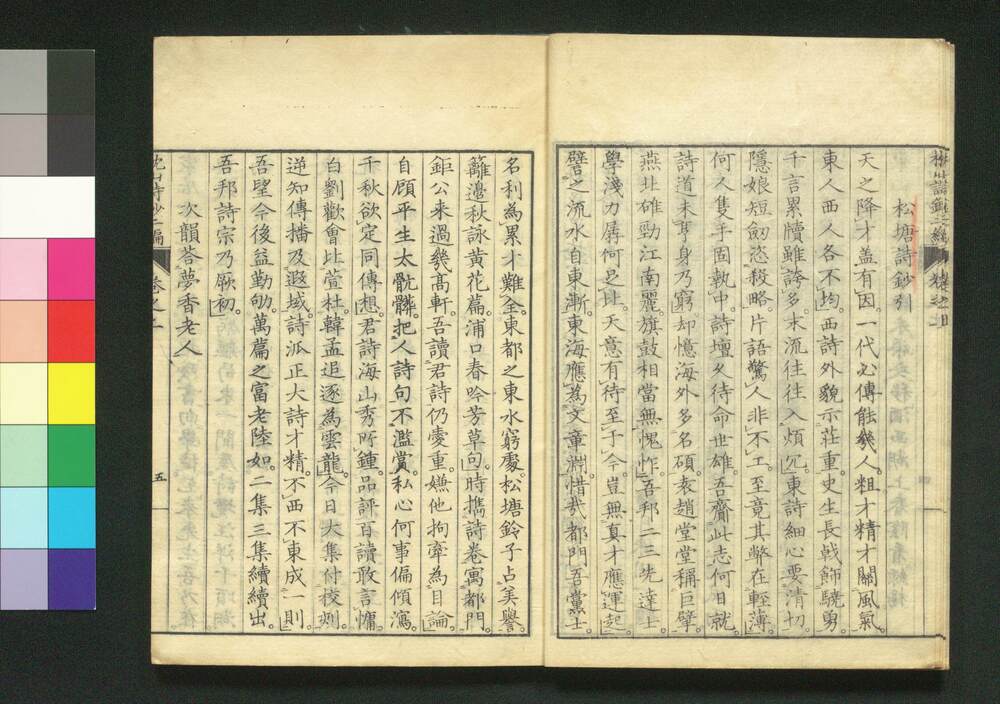 松塘詩鈔引
天之降才盖有因。一代必傳能幾人。粗才精才關風氣。
東人西人各不均。西詩外貌示莊重。史生長戟飾驍勇。
千言累牘雖誇多。末流往往入煩冗。東詩細心要清切。
隱娘短劒恣殺略。片語驚人非不工。至竟其弊在輕薄。
何人隻手固執中。詩壇久待命世雄。吾齎此志何日就
詩道未亨身乃窮。却憶海外多名碩。袁趙堂堂稱巨擘。
燕北確勁江南麗。旗鼓相當無愧怍。吾邦二三先達士
學淺力孱何足比。天意有待至于今。豈無真才應運起。
譬之流水自東漸。東海應為文章淵。惜哉都門吾黨士。
名利為累才難全。東都之東水窮處。松塘鈴子占美譽。
籬邊秋詠黃花篇。浦口春吟芳草句。時擕詩卷寓都門。
鉅公来過幾高軒。吾讀君詩仍愛重。嫌他拘牽為目論。
自顧平生太骯髒。把人詩句不濫賞。私心何事偏傾瀉。
千秋欲定同傳想。君詩海山秀所鍾。品評百讀敢言慵。
白劉歡會比萱杜。韓孟追逐為雲龍。今日大集付校刻。
逆知傳播及遐域。詩派正大詩才精。不西不東成一則。
吾望今後益勤劬。萬篇之富老陸如。二集三集續續出。
吾邦詩宗乃厥初。
次韻荅夢香老人
五